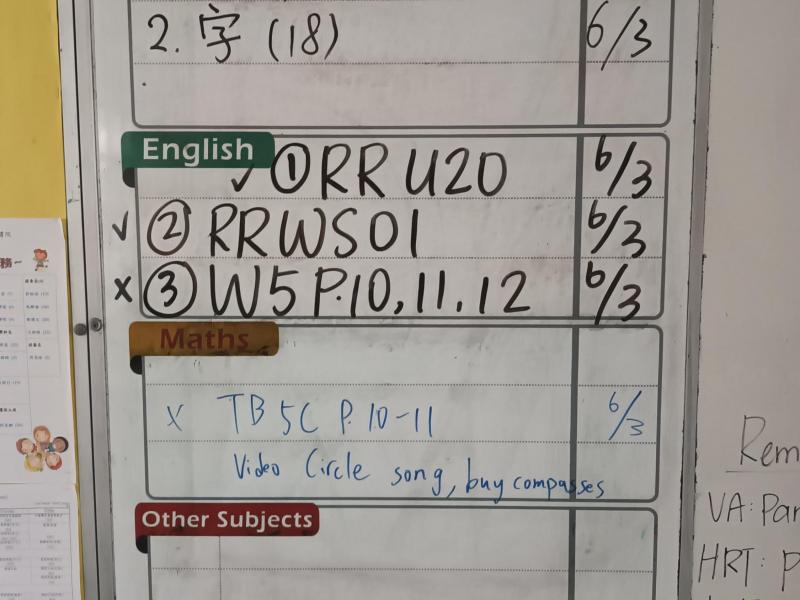 2. 字 (18) 6/3
English
✓ ① RR U20 6/3
✓ ② RRWS01 6/3
x ③ W5 P.10, 11. 12 6/3
Maths
x TB 5C P. 10-11 6/3
Video Circle song, buy compasses
Other Subjects
Rem
VA: Par
HRT: P